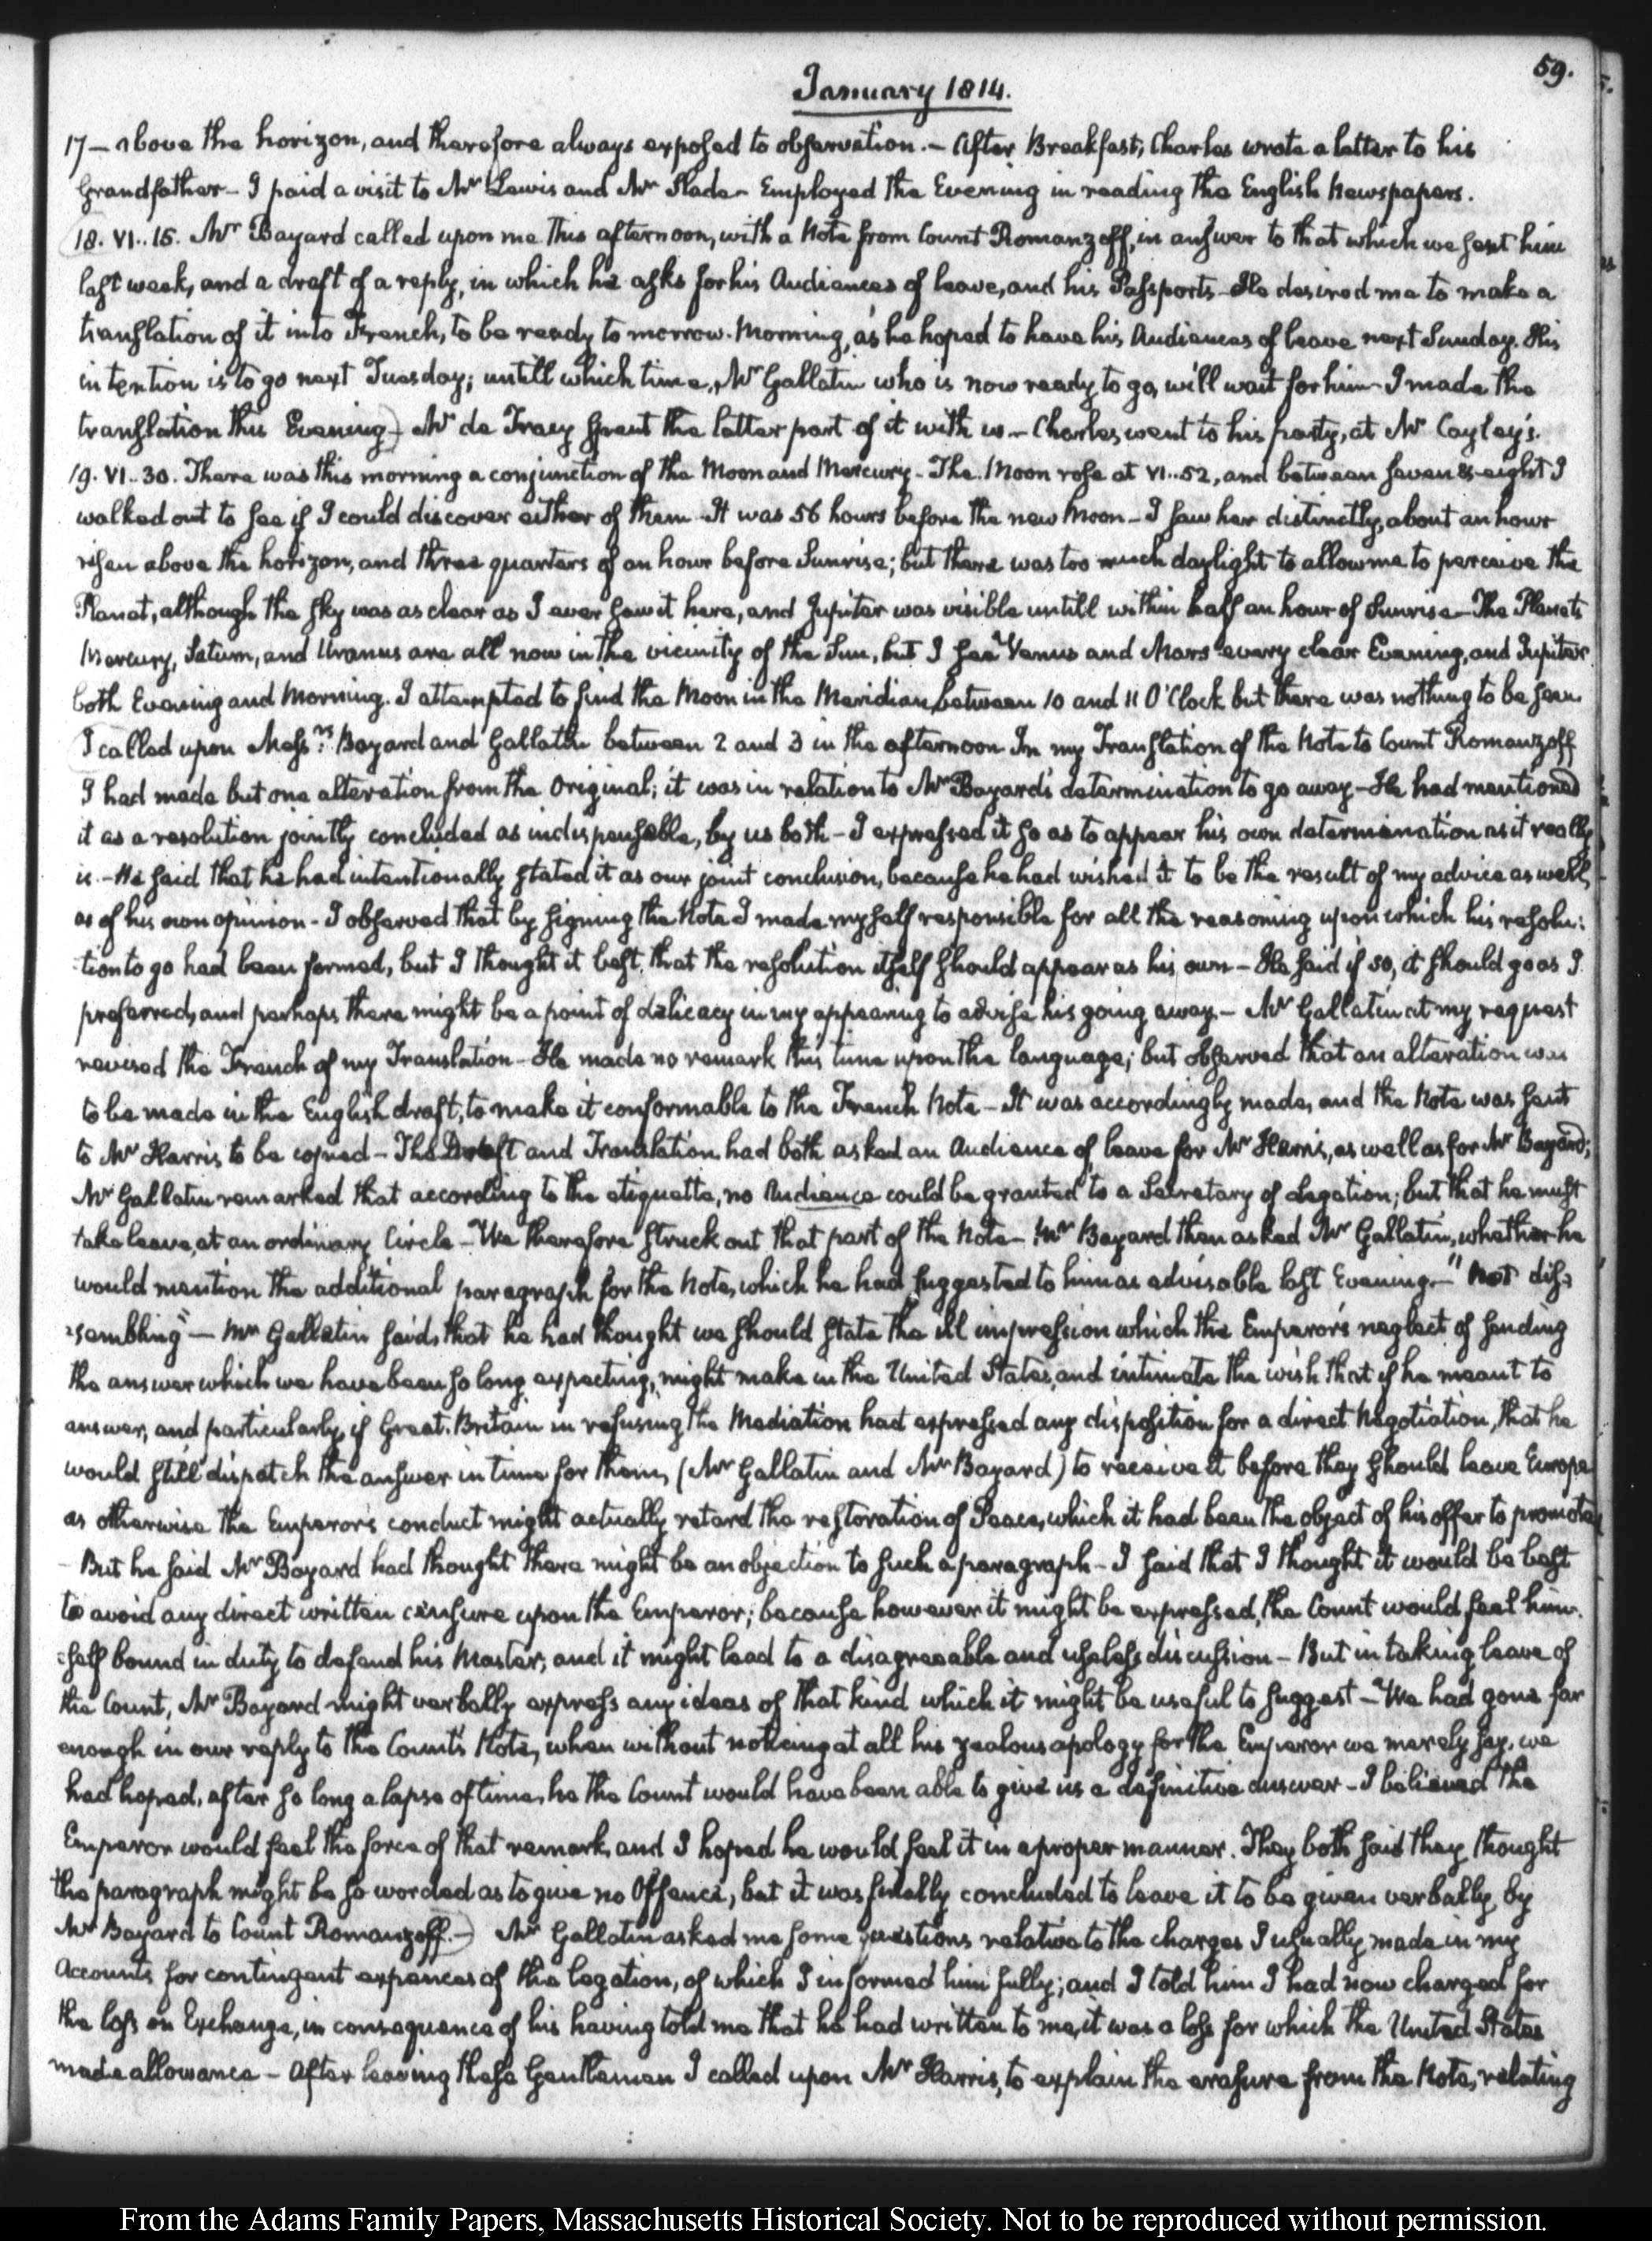 59.
January 1814.
17 — above the horizon, and therefore always exposed to observation. — After Breakfast, Charles wrote a letter to his
Grandfather — I paid a visit to Mr Lewis and Mr Slade — Employed the Evening in reading the English Newspapers.
18. VI..15. Mr Bayard called upon me this afternoon, with a Note from Count Romanzoff, in answer to that which we sent him
last week, and a draft of a reply, in which he asks for his Audiences of leave, and his Passports — He desired me to make a
translation of it into French, to be ready to morrow Morning, as he hoped to have his Audiences of leave next Sunday. His
intention is to go next Tuesday; untill which time, Mr Gallatin who is now ready to go, will wait for him — I made the
translation this Evening) Mr de Tracy spent the latter part of it with us — Charles went to his party, at Mr Cayley's.
19. VI..30. There was this morning a conjunction of the Moon and Mercury — The Moon rose at VI..52, and between seven & eight I
walked out to see if I could discover either of them — It was 56 hours before the new Moon — I saw her distinctly, about an hour
risen above the horizon, and three quarters of an hour before Sunrise; but there was too much daylight to allow me to perceive the
Planet, although the sky was as clear as I ever saw it here, and Jupiter was visible untill within half an hour of Sunrise — The Planets
Mercury, Saturn, and Uranus are all now in the vicinity of the Sun, but I see Venus and Mars every clear Evening, and Jupiter
both Evening and Morning. I attempted to find the Moon in the Meridian between 10 and 11 O'Clock but there was nothing to be seen.
(I called upon Messrs Bayard and Gallatin between 2 and 3 in the afternoon In my Translation of the Note to Count Romanzoff
I had made but one alteration from the Original; it was in relation to Mr Bayard's determination to go away — He had mentioned
it as a resolution jointly concluded as indispensable, by us both — I expressed it so as to appear his own determination as it really
is. — He said that he had intentionally stated it as our joint conclusion, because he had wished it to be the result of my advice as well,
as of his own opinion — I observed that by signing the Note I made myself responsible for all the reasoning upon which his resolu:
:tion to go had been formed, but I thought it best, that the resolution itself should appear as his own — He said if so, it should go as I
preferred, and perhaps there might be a point of delicacy in my appearing to advise his going away. — Mr Gallatin at my request
revised the French of my Translation — He made no remark this time upon the language; but observed that an alteration was
to be made in the English draft, to make it conformable to the French Note — It was accordingly made, and the Note was sent
to Mr Harris to be copied — The Draft and Translation had both asked an Audience of leave for Mr Harris, as well as for Mr Bayard;
Mr Gallatin remarked that according to the etiquette, no Audience could be granted to a Secretary of Legation; but that he must
take leave, at an ordinary Circle — We therefore struck out that part of the Note — Mr Bayard then asked Mr Gallatin, whether he
would mention the additional paragraph for the Note, which he had suggested to him as advisable last Evening. — "Not dis:
:sembling" — Mr Gallatin said, that he had thought we should state the ill impression which the Emperor's neglect of sending
the answer which we have been so long expecting, might make in the United States, and intimate the wish that if he meant to
answer, and particularly, if Great-Britain in refusing the Mediation had expressed any disposition for a direct Negotiation, that he
would still dispatch the answer in time for them, (Mr Gallatin and Mr Bayard) to receive it before they should leave Europe
as otherwise the Emperor's conduct might actually retard the restoration of Peace, which it had been the object of his offer to promote,
— But he said Mr Bayard had thought there might be an objection to such a paragraph — I said that I thought it would be best
to avoid any direct written censure upon the Emperor; because however it might be expressed, the Count would feel him:
:self bound in duty to defend his Master, and it might lead to a disagreeable and useless discussion — But in taking leave of
the Count, Mr Bayard might verbally express any ideas of that kind which it might be useful to suggest — We had gone far
enough in our reply to the Count's Note, when without noticing at all his zealous apology for the Emperor we merely say, we
had hoped, after so long a lapse of time, he the Count would have been able to give us a definitive answer — I believed the
Emperor would feel the force of that remark, and I hoped he would feel it in a proper manner. They both said they thought
the paragraph might be so worded as to give no Offence, but it was finally concluded to leave it to be given verbally, by
Mr Bayard to Count Romanzoff. —) Mr Gallatin asked me some questions relative to the charges I usually made in my
Accounts for contingent expences of the legation, of which I informed him fully; and I told him I had now charged for
the loss on Exchange, in consequence of his having told me that he had written to me, it was a loss for which the United States
made allowance — After leaving these Gentlemen I called upon Mr Harris, to explain the erasure from the Note, relating
From the Adams Family Papers, Massachusetts Historical Society. Not to be reproduced without permission.